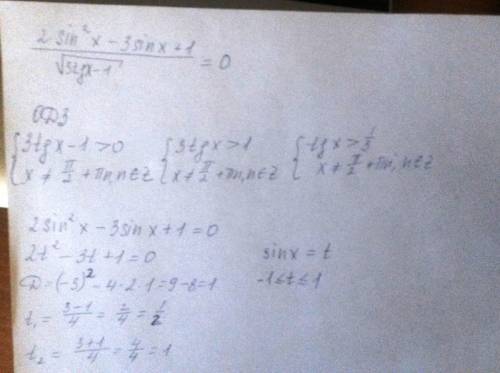 2 sin²x - 3 sinx + 1 / √3tgx-1 = 0
ОДЗ
{3tgx-1>0 {3tgx>1 {tgx>1/3
{x≠π/2+πn, n∈Z {x≠π/2+πn, n∈Z {x≠π/2+πn, n∈Z
2 sin²x - 3 sinx + 1 = 0
2t² - 3t + 1 = 0 sinx = t
D = (-3)² - 4·2·1 = 9-8=1 -1≤t≤1
t₁ = 3-1/4 = 2/4 = 1/2
t₂ = 3+1/4 = 4/4 = 1